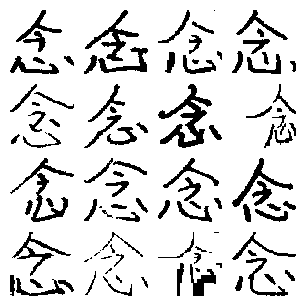 念念念念
念念念念
念念念念
念念念念